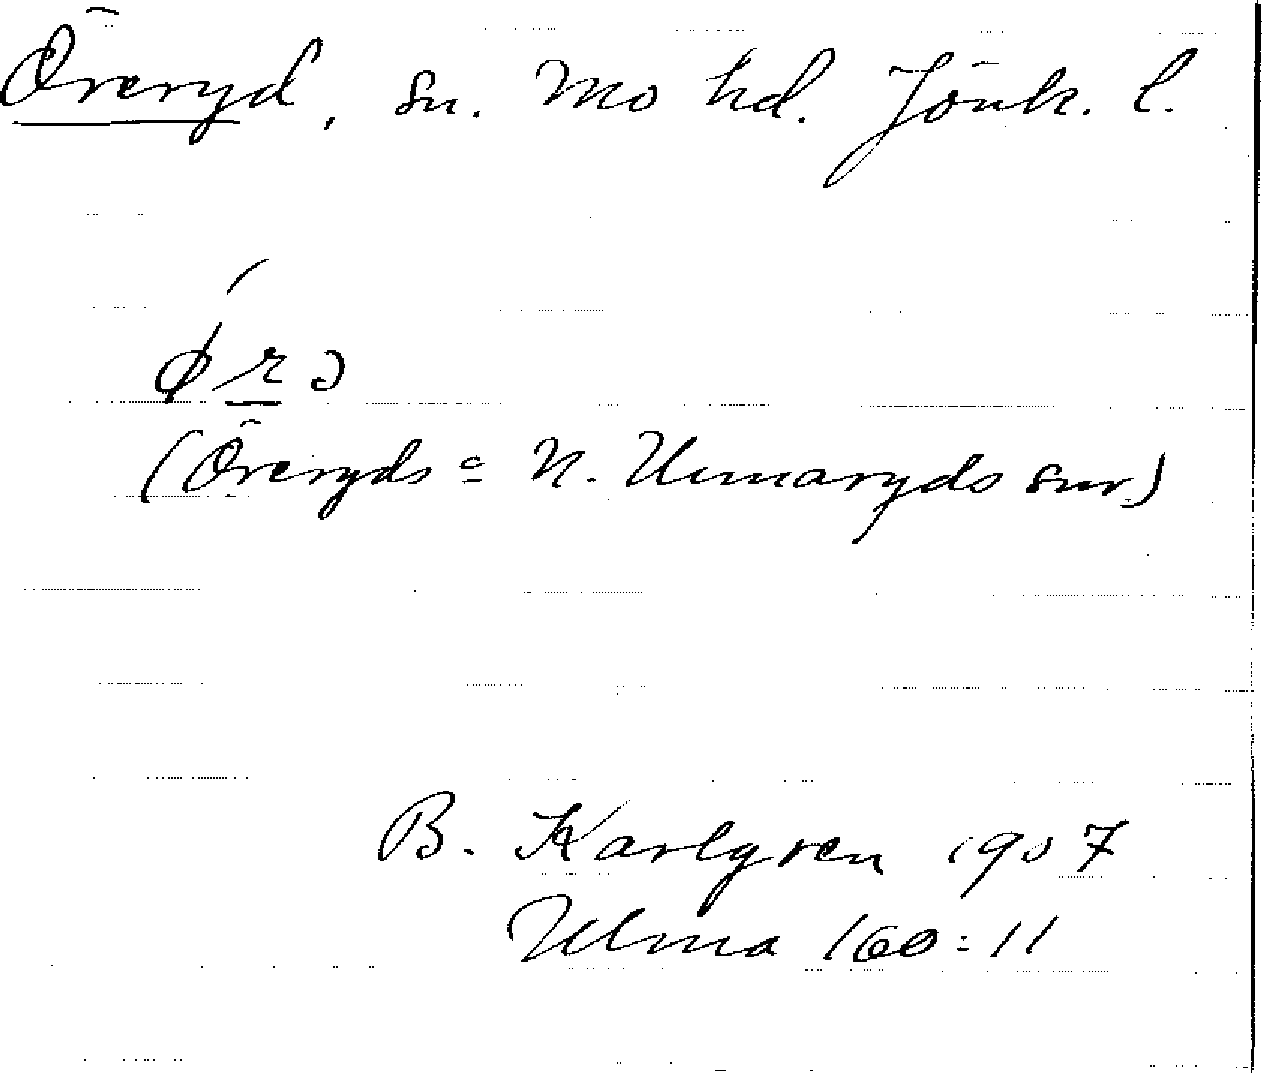 Öreryd, sn. Mo hd. Jönk. l.
ǿrə
(Öreryds = N. Unnaryds snr.)
B. Karlgren 1907
Ulma 160:11